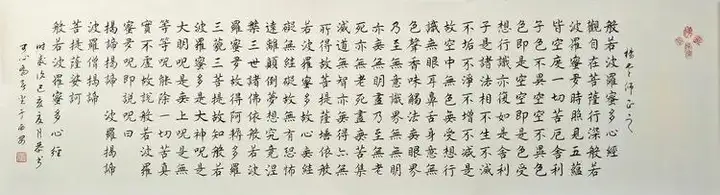 般若波羅蜜多心經
觀自在菩薩行深般若
波羅蜜多時照見五蘊
皆空度一切苦厄舍利
子色不異空空不異色
色即是空空即是色受
想行識亦復如是舍利
子是諸法相不生不滅
不垢不淨不增不減是
故空中無色無受想行
識無眼耳鼻舌身意無
色聲香味觸法無眼界
乃至無意識界無無明
亦無無明盡乃至無老
死亦無老死盡無苦集
滅道無智亦無得以無
所得故菩提薩埵依般
若波羅蜜多故心無罣
礙無罣礙故無有恐怖
遠離顛倒夢想究竟涅
槃三世諸佛依般若波
羅蜜多故得阿耨多羅
三藐三菩提故知般若
波羅蜜多是大神呪是
大明呪是無上呪是無
等等呪能除一切苦真
實不虛故說般若波羅
蜜多呪即說呪曰
揭諦揭諦 波羅揭諦
波羅僧揭諦
菩提薩婆訶
般若波羅蜜多心經
時歲次己亥